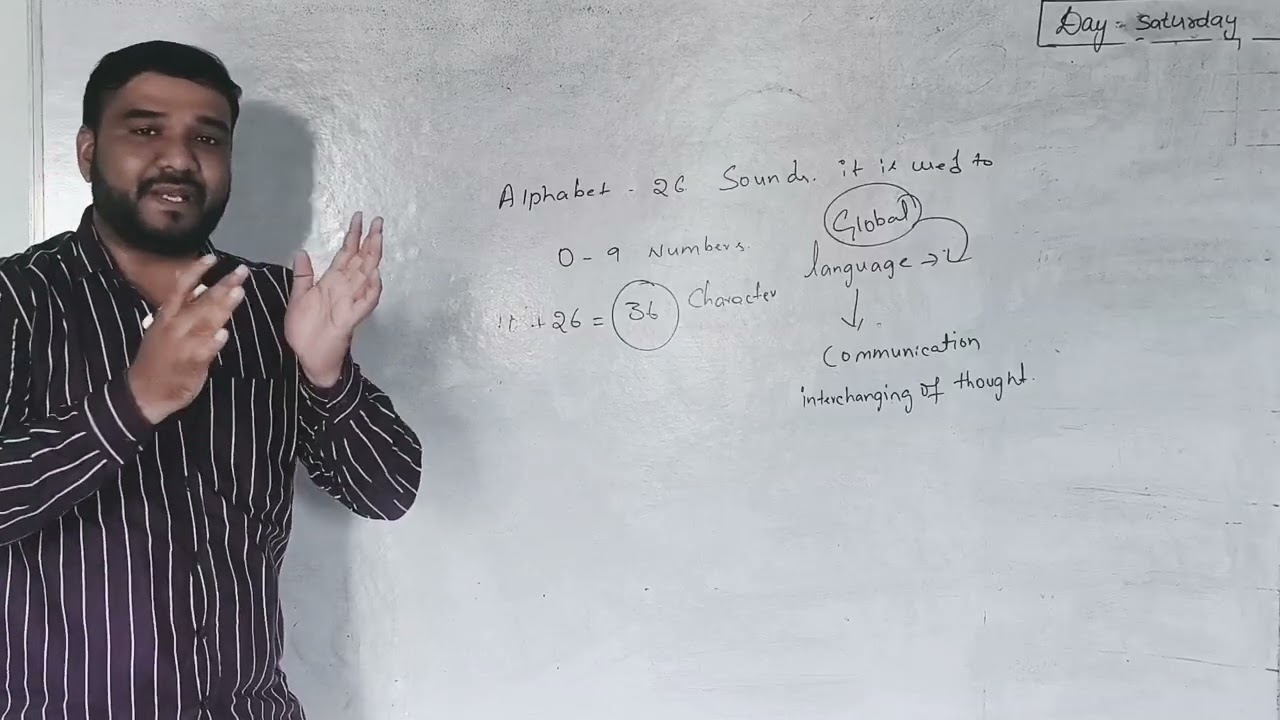 Day :- Saturday
Alphabet - 26 Sounds. it is used to
Global
0 - 9 Numbers.
language →
+ 26 = 36 Character
↓
Communication
interchanging of thought.